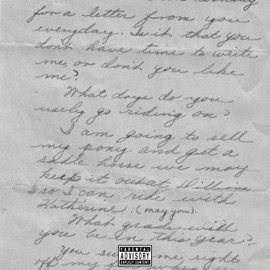 for a letter from you
everyday. Is it that you
don't have time to write
me, or don't you like
me?
What days do you
usely go riding on?
I am going to sell
my pony and get a
sadle horse we may
keep it out at Dillons
so I can ride with
Katherine. (may you).
What grade will
you be in this year?
You se me right
off my
PARENTAL
ADVISORY
EXPLICIT CONTENT